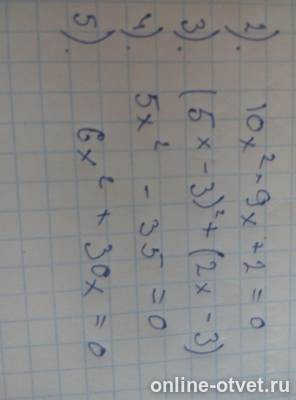 2). 10x² - 9x + 2 = 0
3). (5x - 3)² + (2x - 3)
4). 5x² - 35 = 0
5). 6x² + 30x = 0
online-otvet.ru